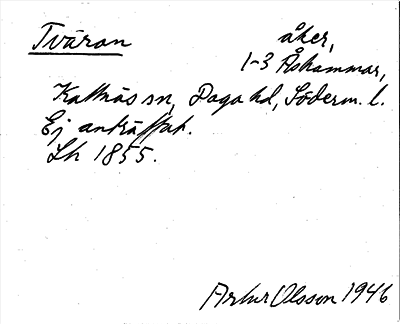 Tväran
åker,
1-3 Åshammar,
Kattnäs sn, Daga hd, Söderm. l.
Ej anträffat.
Lh 1855.
Artur Olsson 1946